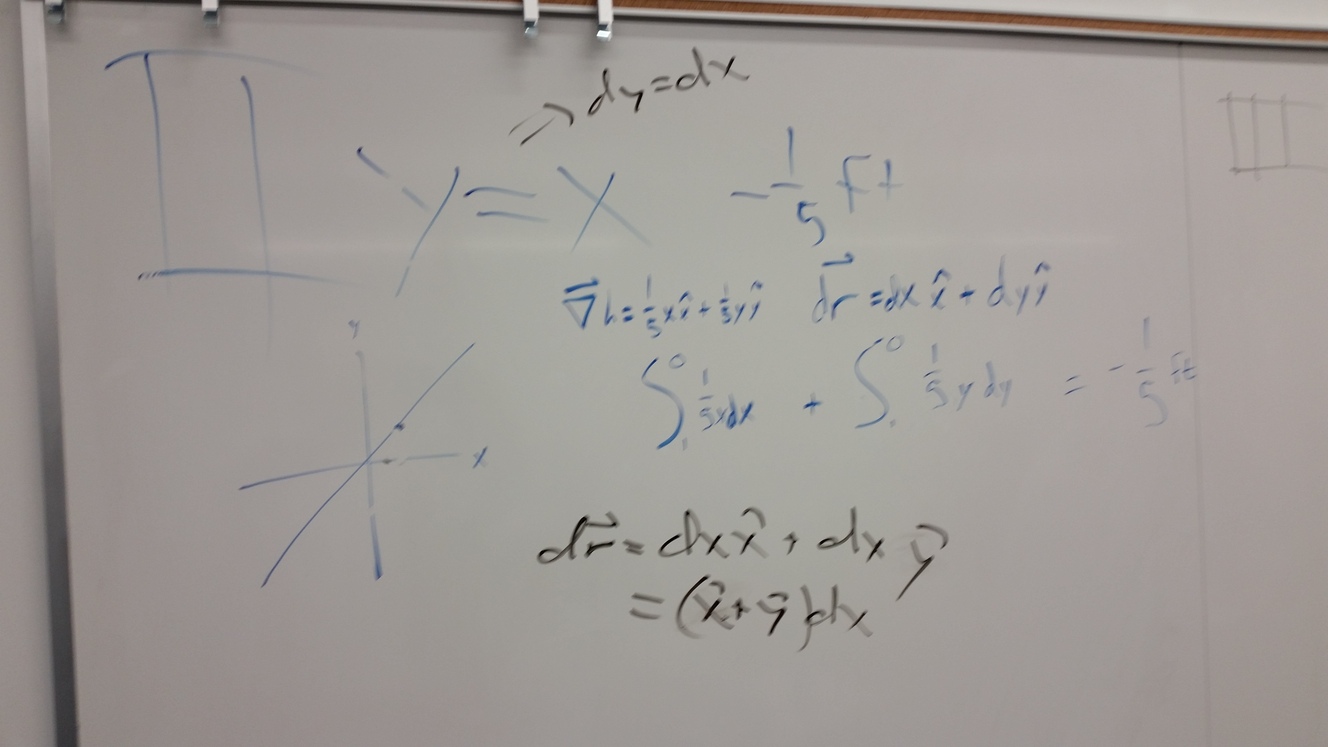 ⇒ dy=dx
y = x
-1/5 ft
∇⃗h = 1/5 x x̂ + 1/5 y ŷ   dr⃗ = dx x̂ + dy ŷ
∫₁⁰ 1/5 x dx + ∫₁⁰ 1/5 y dy = -1/5 ft
y
x
dr⃗ = dx x̂ + dx ŷ
= (x̂ + ŷ) dx